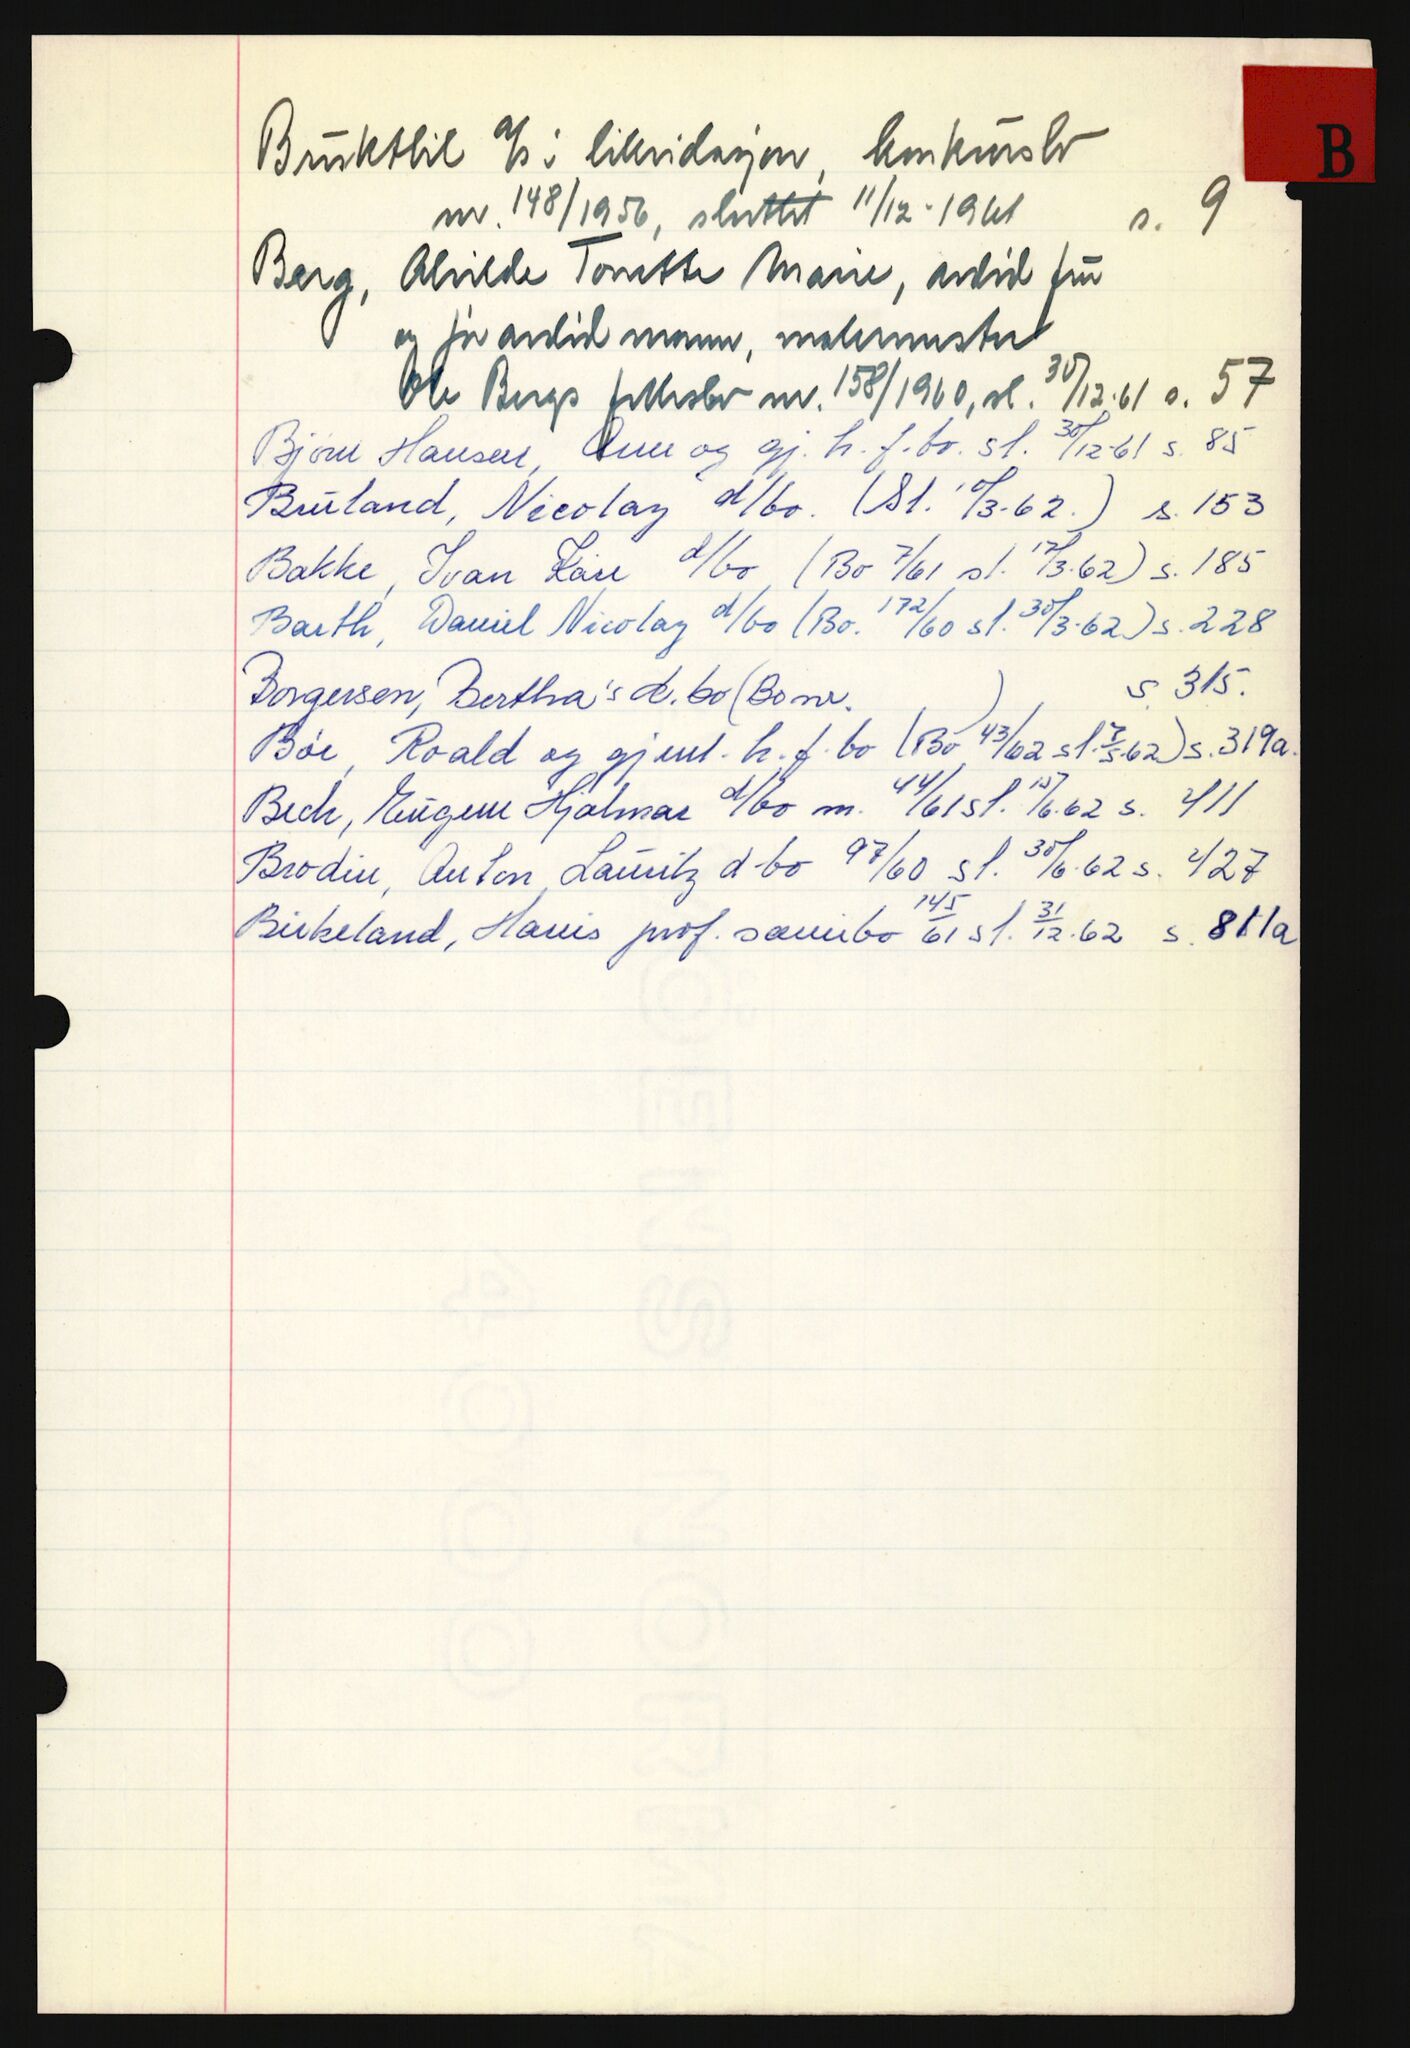 B
Bruktbil A/S i likvidasjon, konkursbo
nr. 148/1956, sluttet 11/12-1961 s. 9
Berg, Alvilde Tonette Marie, avdød frú
og før avdød mann, malermester
Ole Bergs fellesbo nr. 158/1960, sl. 30/12-61 s. 57
Bjørn Hansen, Anne og gj. h. f. bo. sl. 30/12-61 s. 85
Bruland, Nicolay d/bo. (Sl. 10/3-62.) s. 153
Bakke, Ivan Kåre d/bo (Bo 7/61 sl. 17/3-62) s. 185
Barth, Daniel Nicolay d/bo (Bo. 172/60 sl. 30/3-62) s. 228
Borgersen, Bertha's d.bo (Bo nr. ) s. 315.
Bøe, Roald og gjenl. h. f. bo (Bo 43/62 sl. 7/5-62) s. 319a.
Bech, Eugene Hjalmar d/bo nr. 44/61 sl. 15/6-62 s. 411
Brodin, Anton Lauritz d-bo 97/60 sl. 30/6-62 s. 427
Birkeland, Hans prof. særeibo 145/61 sl. 31/12-62 s. 811a